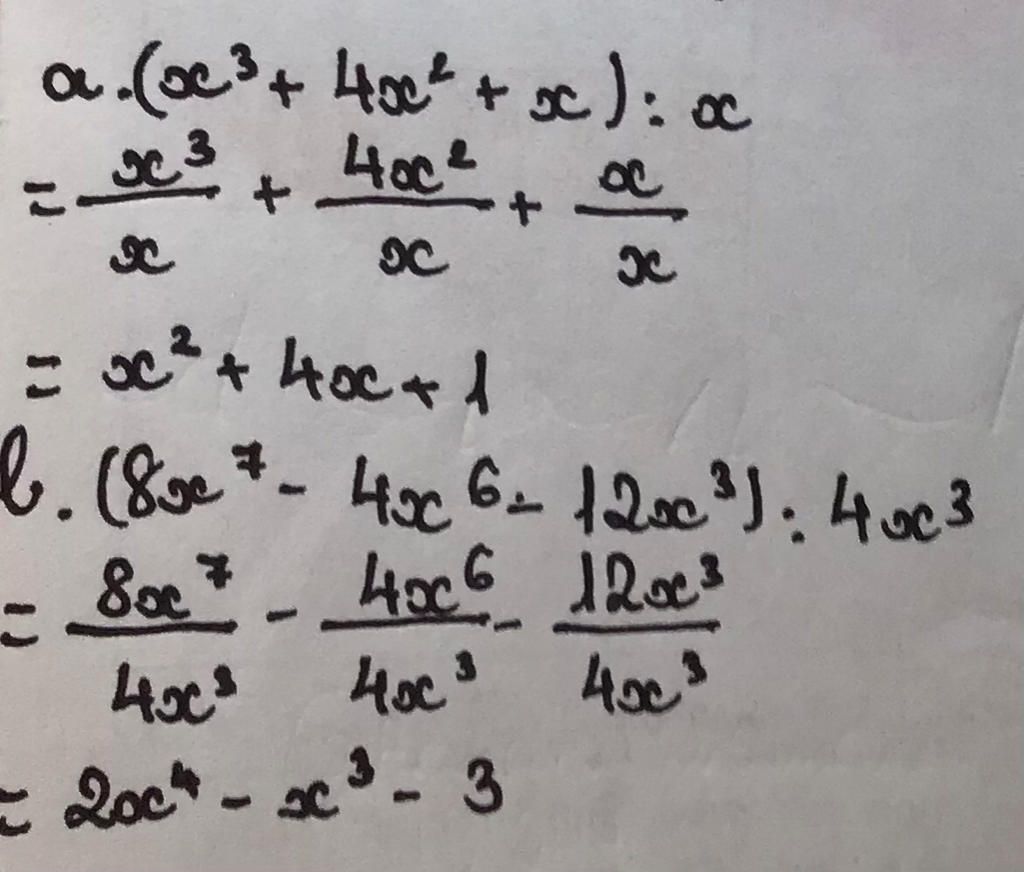 a. (x³ + 4x² + x) : x
= x³/x + 4x²/x + x/x
= x² + 4x + 1
b. (8x⁷ - 4x⁶ - 12x³) : 4x³
= 8x⁷/4x³ - 4x⁶/4x³ - 12x³/4x³
= 2x⁴ - x³ - 3